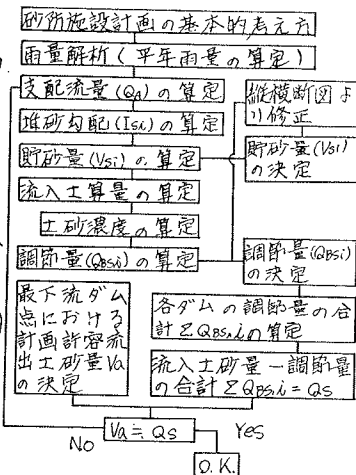 砂防施設計画の基本的考え方
雨量解析(平年雨量の算定)
支配流量(QA)の算定
堆砂勾配(Isi)の算定
貯砂量(Vsi)の算定
流入土算量の算定
土砂濃度の算定
調節量(QBSi)の算定
縦横断図よ
り修正
貯砂量(Vsi)
の決定
調節量(QBSi)
の決定
最下流ダム
点における
計画許容流
出土砂量Va
の決定
各ダムの調節量の合
計ΣQBS,iの算定
流入土砂量-調節量
の合計ΣQBS,i=QS
Va≒QS
No
Yes
O.K.